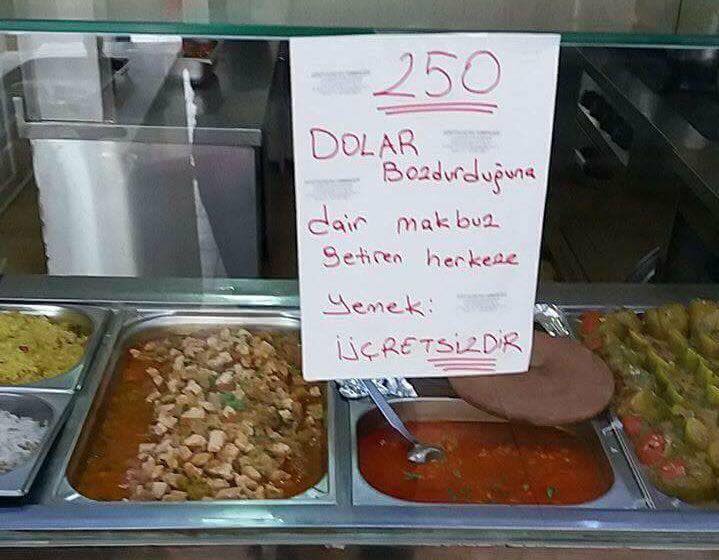 250
DOLAR
Bozdurduğuna
dair makbuz
getiren herkese
Yemek:
ÜÇRETSİZDİR